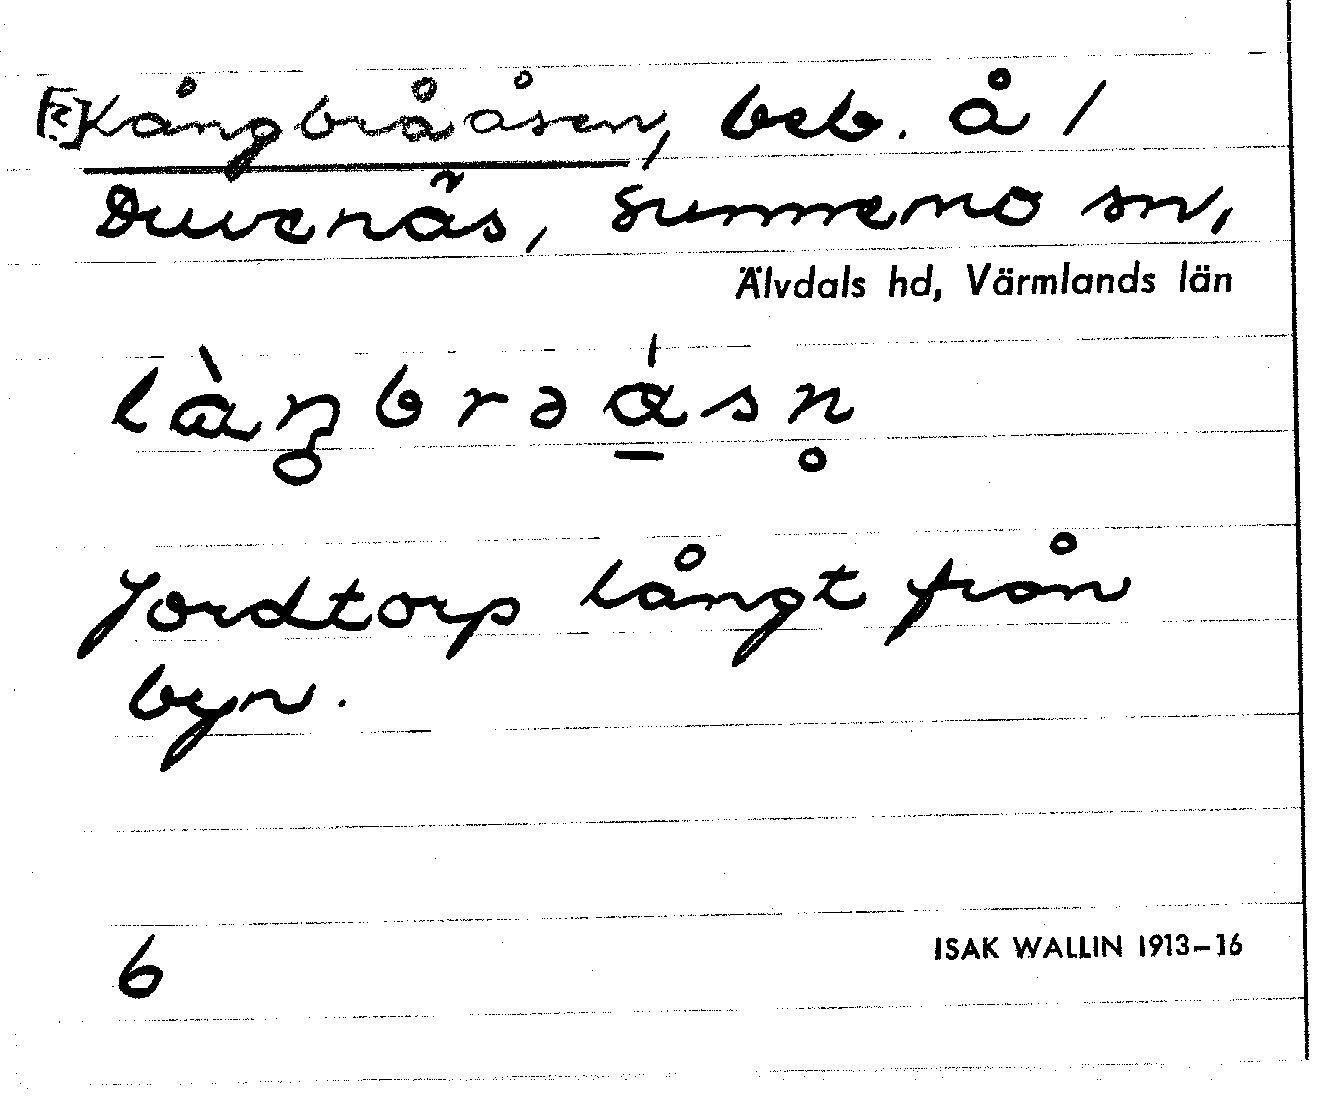 [?] Långbrååsen, beb. å /
Duvenäs, Sunnemo sn,
Älvdals hd, Värmlands län
làŋbrəásn̥
Jordtorp långt från
byn.
6
ISAK WALLIN 1913–16